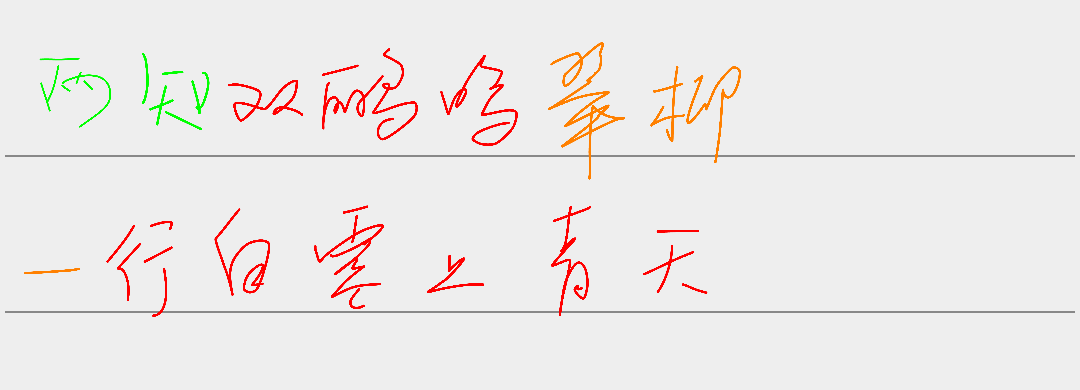 两知双鹂鸣翠柳
一行白雲上青天